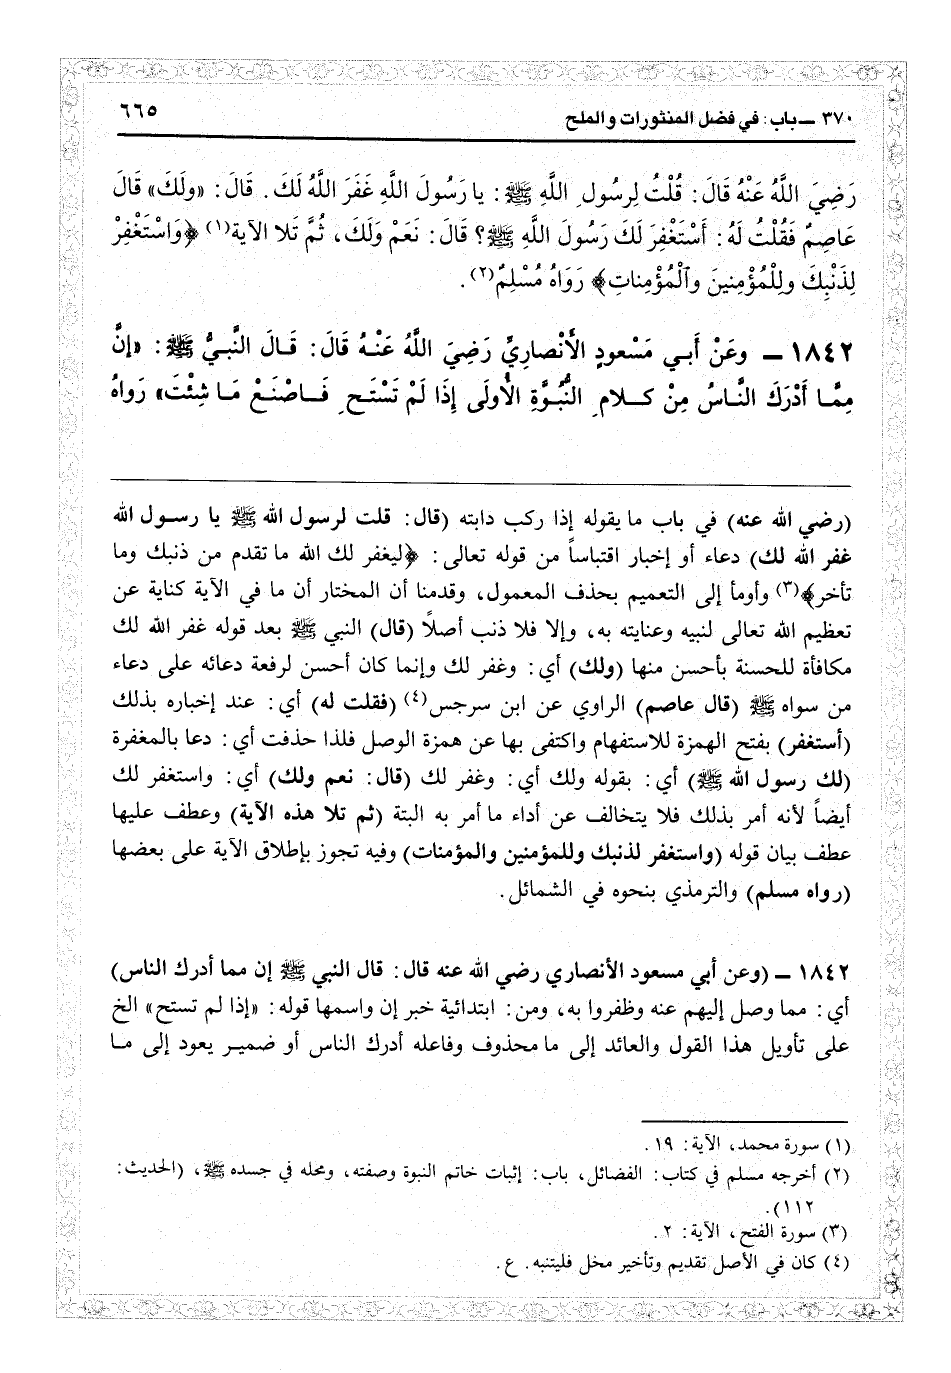 ٣٧٠ ــ باب: في فضل المنثورات والملح ٦٦٥
رَضِيَ اللَّهُ عَنْهُ قَالَ: قُلْتُ لِرسُولِ اللَّهِ ﷺ: يا رَسُولَ اللَّهِ غَفَرَ اللَّهُ لَكَ. قَالَ: «ولَكَ» قَالَ
عَاصِمٌ فَقُلْتُ لَهُ: أَسْتَغْفَرَ لَكَ رَسُولَ اللَّهِ ﷺ؟ قَالَ: نَعَمْ وَلَكَ، ثُمَّ تَلا الآيةَ(١) ﴿وَاسْتَغْفِرْ
لِذَنْبِكَ ولِلْمُؤْمِنينَ وَالْمُؤْمِناتِ﴾ رَوَاهُ مُسْلِمٌ(٢).
١٨٤٢ ــ وعَنْ أَبي مَسْعودٍ الأَنْصاريِّ رَضِيَ اللَّهُ عَنْهُ قَالَ: قَالَ النَّبيُّ ﷺ: «إنَّ
مِمَّا أَدْرَكَ النَّاسُ مِنْ كَلامِ النُّبُوَّةِ الأُولَى إذَا لَمْ تَسْتَحِ فَاصْنَعْ مَا شِئْتَ» رَواهُ
(رضي الله عنه) في باب ما يقوله إذا ركب دابته (قال: قلت لرسول الله ﷺ يا رسول الله
غفر الله لك) دعاء أو إخبار اقتباساً من قوله تعالى: ﴿ليغفر لك الله ما تقدم من ذنبك وما
تأخر﴾(٣) وأومأ إلى التعميم بحذف المعمول، وقدمنا أن المختار أن ما في الآية كناية عن
تعظيم الله تعالى لنبيه وعنايته به، وإلا فلا ذنب أصلاً (قال) النبي ﷺ بعد قوله غفر الله لك
مكافأة للحسنة بأحسن منها (ولك) أي: وغفر لك وإنما كان أحسن لرفعة دعائه على دعاء
من سواه ﷺ (قال عاصم) الراوي عن ابن سرجس(٤) (فقلت له) أي: عند إخباره بذلك
(أستغفر) بفتح الهمزة للاستفهام واكتفى بها عن همزة الوصل فلذا حذفت أي: دعا بالمغفرة
(لك رسول الله ﷺ) أي: بقوله ولك أي: وغفر لك (قال: نعم ولك) أي: واستغفر لك
أيضاً لأنه أمر بذلك فلا يتخالف عن أداء ما أمر به البتة (ثم تلا هذه الآية) وعطف عليها
عطف بيان قوله (واستغفر لذنبك وللمؤمنين والمؤمنات) وفيه تجوز بإطلاق الآية على بعضها
(رواه مسلم) والترمذي بنحوه في الشمائل.
١٨٤٢ ــ (وعن أبي مسعود الأنصاري رضي الله عنه قال: قال النبي ﷺ إن مما أدرك الناس)
أي: مما وصل إليهم عنه وظفروا به، ومن: ابتدائية خبر إن واسمها قوله: «إذا لم تستح» الخ
على تأويل هذا القول والعائد إلى ما محذوف وفاعله أدرك الناس أو ضمير يعود إلى ما
(١) سورة محمد، الآية: ١٩.
(٢) أخرجه مسلم في كتاب: الفضائل، باب: إثبات خاتم النبوة وصفته، ومحله في جسده ﷺ، (الحديث:
١١٢).
(٣) سورة الفتح، الآية: ٢.
(٤) كان في الأصل تقديم وتأخير مخل فليتنبه. ع.